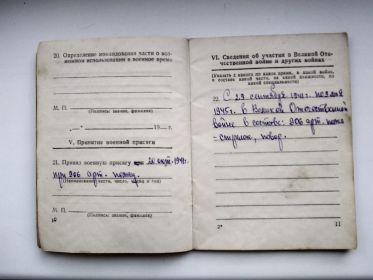 20. Определение командования части о воз-
можном использовании в военное время
М. П.
(Подпись: звание, фамилия)
„—“ 19— г.
V. Принятие военной присяги
21. Принял военную присягу
при 206 арт. полку.
(Наименование части, число, месяц и год)
М. П.
(Подпись: звание, фамилия)
10
VI. Сведения об участии в Великой Оте-
чественной войне и других войнах
(Указать с какого по какое время, в какой войне,
в составе какой части, на какой должности, по
какой специальности)
22. С 23 сентября по 9 мая
1945 г. в Великой Отечественной
войне в составе: 206 арт. полк
- стрелок, повар.
2*
11